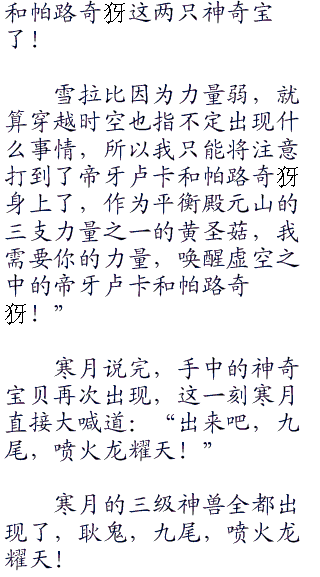 和帕路奇犽这两只神奇宝
了！
雪拉比因为力量弱，就
算穿越时空也指不定出现什
么事情，所以我只能将注意
打到了帝牙卢卡和帕路奇犽
身上了，作为平衡殿元山的
三支力量之一的黄圣菇，我
需要你的力量，唤醒虚空之
中的帝牙卢卡和帕路奇
犽！”
寒月说完，手中的神奇
宝贝再次出现，这一刻寒月
直接大喊道：“出来吧，九
尾，喷火龙耀天！”
寒月的三级神兽全都出
现了，耿鬼，九尾，喷火龙
耀天！